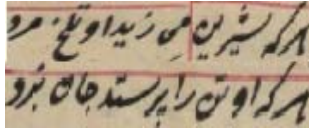 هر که شیرین می زید او تلخ مرد
هر که او تن را پرستد جان نبرد